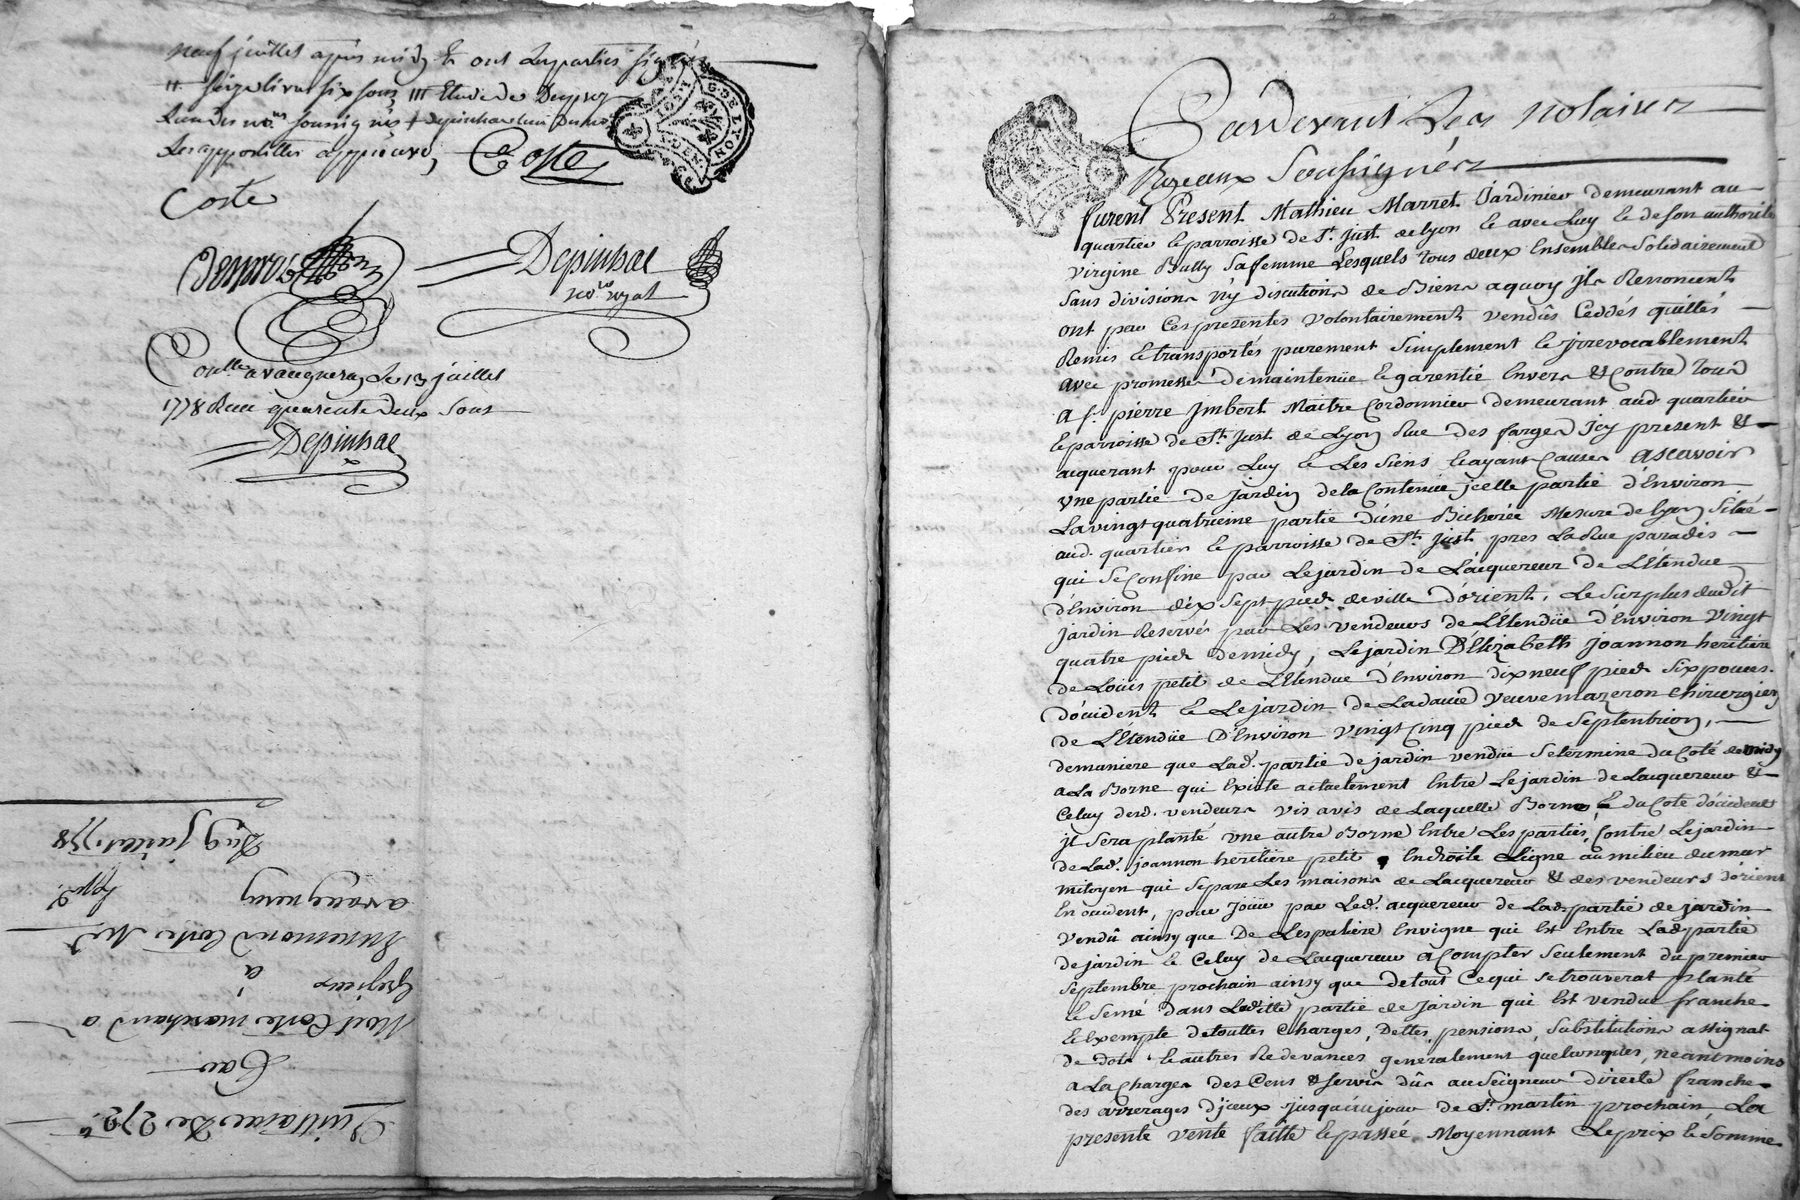 neuf juillet après midy & ont les parties signé
seize livres six sous III Etude de Desproz
Coste
Coste
Depinhac
no.re royal
Contllé a vaugneray le 13 juillet
1778 Reçu quarante deux sous
Depinhac
Quittance de 272
Par
Noel Coste marchand a
Grezieux
à
Coste
a vaugneray
Du 9 juillet 1778
Pardevant Les Notaires
Royaux Soussignés
furent Present Mathieu Marret Jardinier demeurant au
quartier & parroisse de St. Just de lyon & avec Luy & de son authorité
virgine Bully Sa femme Lesquels tous deux Ensembles Solidairement
Sans divisions n'y discutions de Biens a quoy Ils Renoncent
ont par Ces presentes volontairement vendûs Ceddés quittés
Remis & transportés purement Simplement & jrrevocablement
avec promesse de maintenüe & garentie Envers & Contre tous
a Sr. pierre Jmbert Maitre Cordonnier demeurant aud. quartier
& parroisse de St. Just de Lyon Rue des farges Jcy present &
acquerant pour Luy & Les Siens & ayant Causes ascavoir
vne partie de Jardin de la Contenüe jcelle partie d'Environ
La vingt quatrieme partie d'une Bicherée Mesure de lyon Sitüé
aud. quartier & parroisse de St. Just pres La Rue paradis
qui Se Confine par Le jardin de L'acquereur de L'Etendue
d'Environ dix Sept pieds de ville d'orient, Le Surplus dudit
jardin Reservé par Les vendeurs de L'Etendüe d'Environ vingt
quatre pieds de midy, Le jardin D'Elizabeth Joannon heritiere
de Loüis petit de L'Etendue d'Environ dix neuf pieds Six pouces
d'occident & Le jardin de La dame Veuve mazeron Chirurgien
de L'Etendüe D'Environ vingt Cinq pieds de Septentrion,
de maniere que Lad. partie de jardin vendüe Se termine du Coté de midy
a La Borne qui Existe actuelement Entre Le jardin de Lacquereur &
Celuy desd. vendeurs vis avis de Laquelle Borne & du Coté d'occident
jl Sera planté vne autre Borne Entre Les parties, Contre Le jardin
de Lad. joannon heritiere petit, En droite Ligne au milieu du mur
mitoyen qui Separe Les maisons de Lacquereur & des vendeurs d'orient
En occident, pour Joüir par Led. acquereur de Lad. partie de jardin
vendû ainsy que De Lespaliere En vigne qui Est Entre Lad. partie
de jardin & Celuy de Lacquereur a Compter Seulement du premier
Septembre prochain ainsy que de tout Ce qui Se trouverat planté
& Semé dans Laditte partie de Jardin qui Est vendue franche
& Exempte de touttes Charges, Dettes, pensions, Substitutions assignat
de dots & autres Redevances generalement quelconques, neantmoins
a La Charge des Cens & Servis dûs au Seigneur directe franche
des arrerages d'jceux jusqu'au jour de St. martin prochain, La
presente vente faitte & passée Moyennant Le prix & Somme